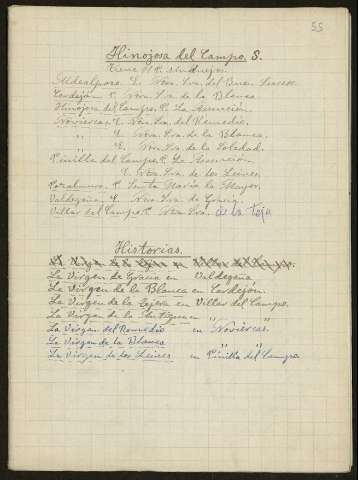 55
Hinojosa del Campo. S.
Tiene
Aldealpozo. E. Ntra. Sra. del Buen Suceso.
Cardejón P. Ntra. Sra. de la Blanca
Hinojosa del Campo. P. La Asunción.
Noviercas. E. Ntra. Sra. del Remedio.
" E. Ntra. Sra. de la Blanca.
" E. Ntra. Sra. de la Soledad.
Pinilla del Campo. P. La Asunción.
" E. Ntra. Sra. de los Leires.
Pozalmuro. P. Santa María la Mayor.
Valdegeña. E. Ntra. Sra. de Gracia.
Villar del Campo. P. Ntra. Sra. de la
Historias.
La Virgen de Gracia en Valdegeña
La Virgen de la Blanca en Cardejón.
La Virgen de la en Villar del Campo.
La Virgen de la en " "
La Virgen del Remedio en "Noviercas."
La Virgen de la Blanca " "
La Virgen de los Leires en Pinilla del Campo